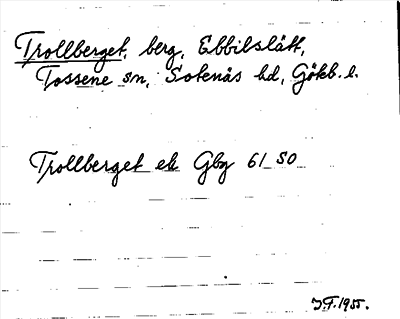 Trollberget, berg, Ebbilslätt,
Tossene sn, Sotenäs hd, Gökb. l.
Trollberget ek Gbg 61 SO
J.F. 1955.